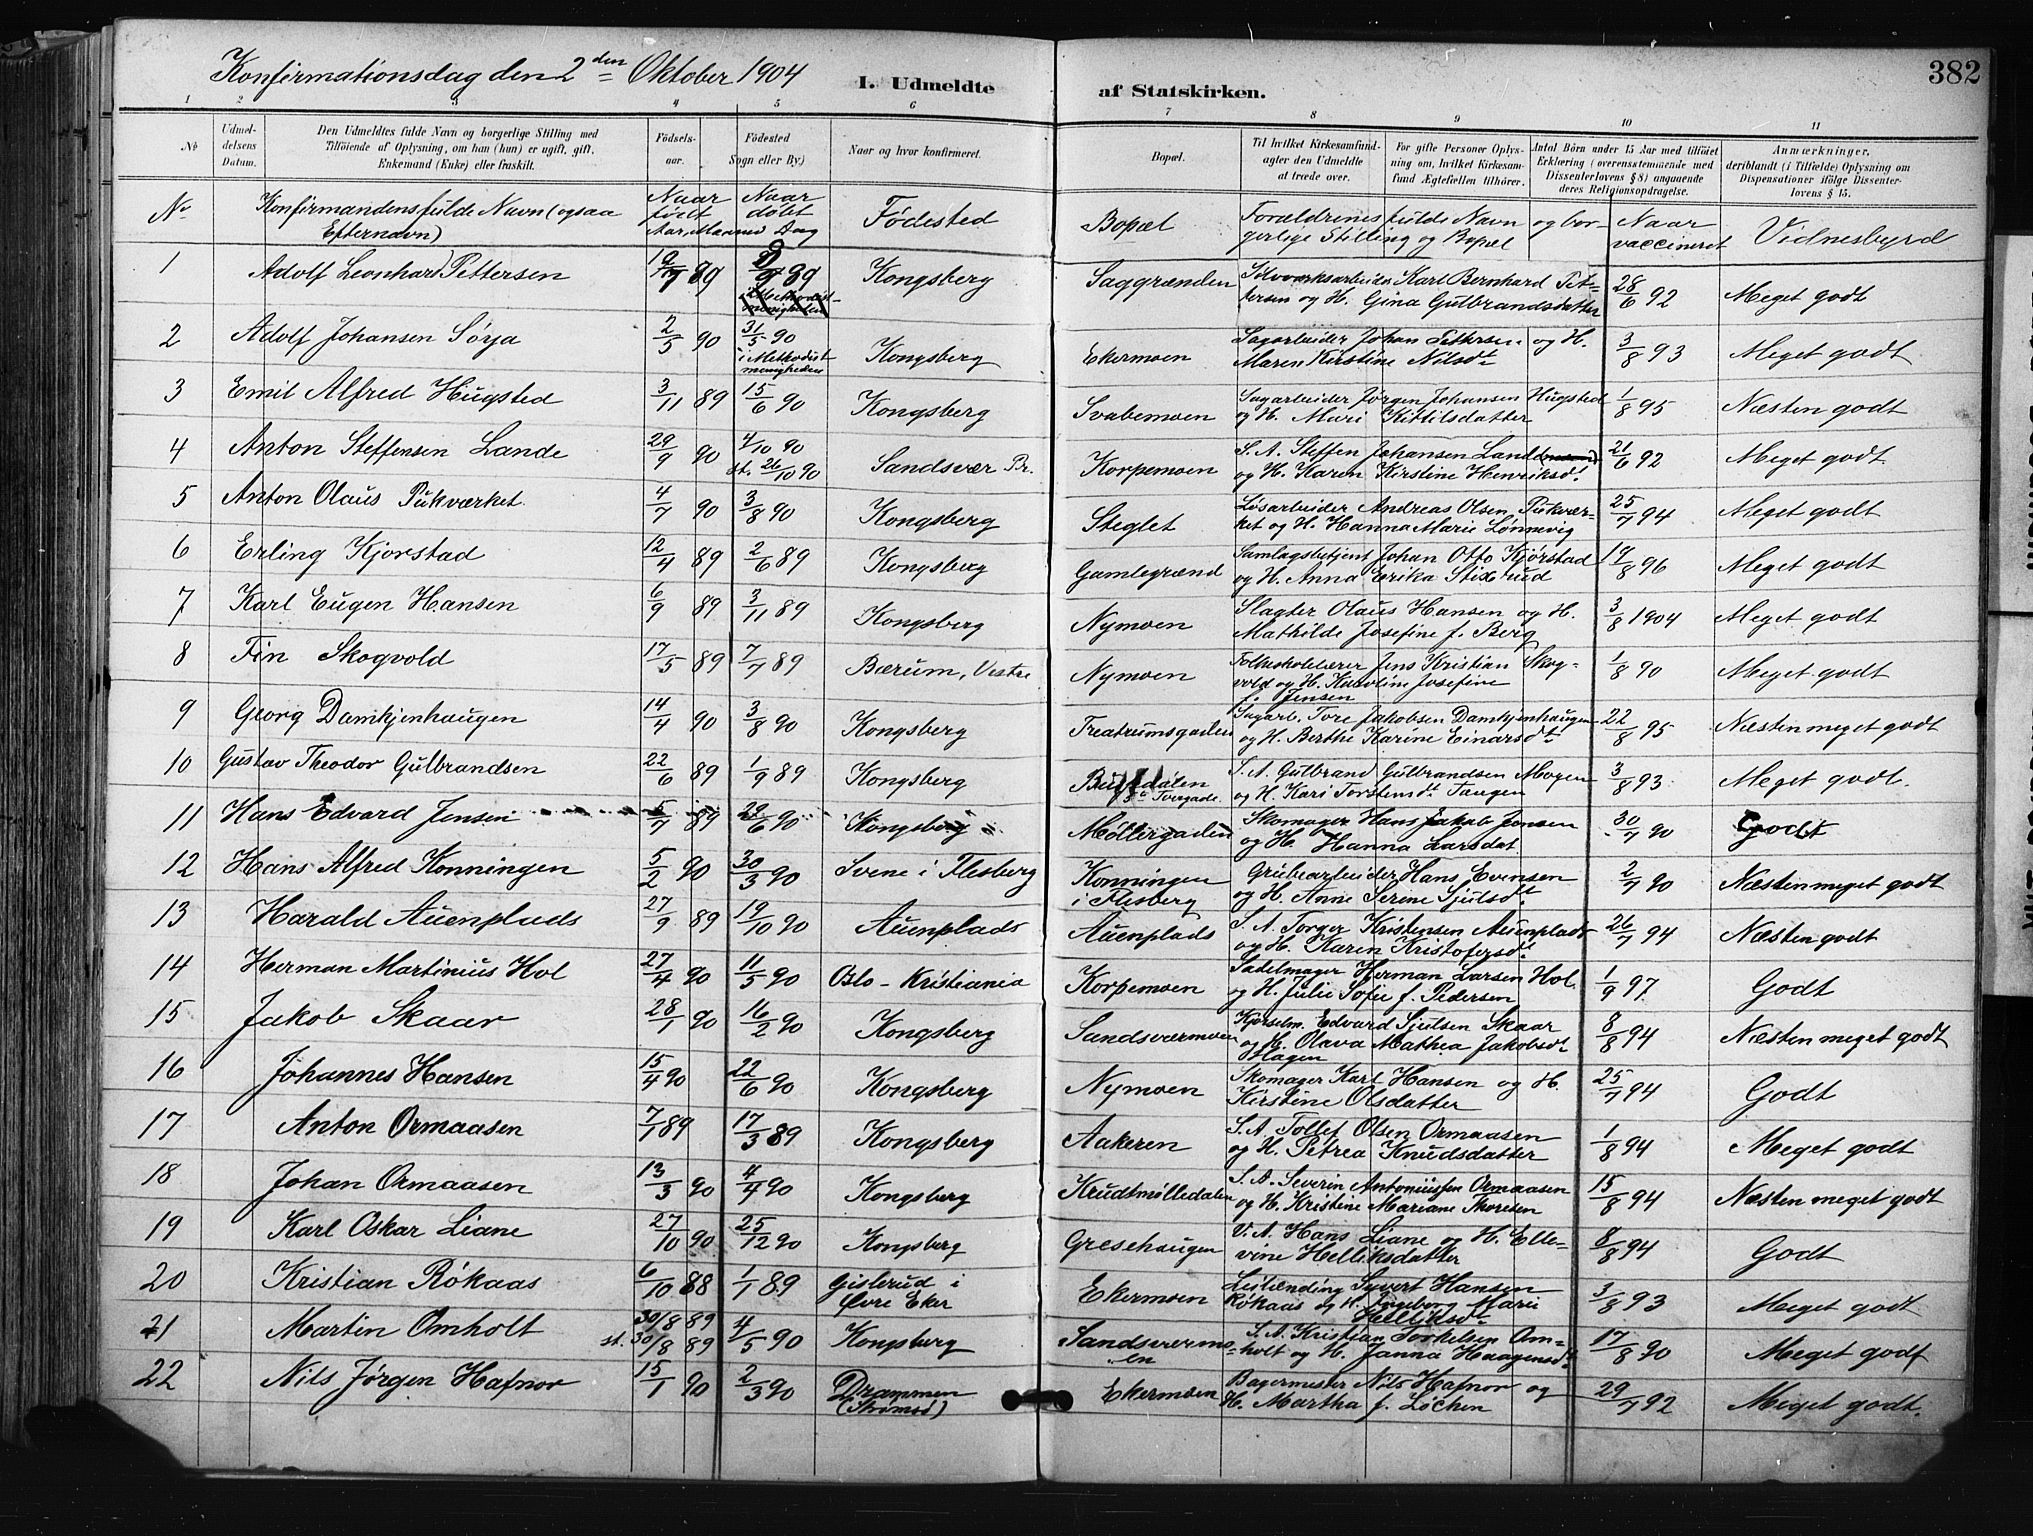 Konfirmationsdag den 2den Oktober 1904
I. Udmeldte af Statskirken.
382
1 2 3 4 5 6 7 8 9 10 11
No
Udmel-
delsens
Datum.
Den Udmeldtes fulde Navn og borgerlige Stilling med
Tilføiende af Oplysning, om han (hun) er ugift, gift,
Enkemand (Enke) eller fraskilt.
Fødsels-
aar.
Fødested
Sogn eller By)
Naar og hvor konfirmeret.
Bopæl.
Til hvilket Kirkesamfund-
agter den Udmeldte
at træde over.
For gifte Personer Oplys-
ning om, hvilket Kirkesam-
fund Ægtefællen tilhører.
Antal Børn under 15 Aar med tilføiet
Erklæring (overensstemmende med
Dissenterlovens § 8) angaaende
deres Religionsopdragelse.
Anmærkninger,
deriblandt (i Tilfælde) Oplysning om
Dispensationer ifølge Dissenter-
lovens § 15.
No
Konfirmandens fulde Navn (ogsaa
Efternavn)
Naar født
Aar, Maaned Dag
Naar døbt
Fødested
Bopæl
Forældrenes fulde Navn og bor-
gerlige Stilling og Bopæl
Naar
vaccineret
Vidnesbyrd
1 Adolf Leonhard Pettersen 89 89 Kongsberg Saggrænden Sølvverksarbeider Karl Bernhard Pet-
tersen og H. Gina Gulbrandsdatter 28/6 92 Meget godt
2 Adolf Johansen Sørja 2/5 90 31/5 90 i Methodist
menigheden Kongsberg Ekermoen Sagarbeider Johan Pettersen og H.
Maren Kirstine Nilsdt 3/8 93 Meget godt
3 Emil Alfred Hugsted 3/11 89 15/6 90 Kongsberg Svabemoen Sagarbeider Jørgen Johansen Hugsted
og H. Mari Kittilsdatter 1/8 95 Næsten godt
4 Anton Steffensen Lande 29/9 90 4/10 90
st. 26/10 90 Sandsvær Pr. Korpemoen S. A. Steffen Johansen Lande
og H. Karen Kirstine Henriksdt 21/6 92 Meget godt
5 Anton Olaus Pukværket 4/7 90 3/8 90 Kongsberg Steglet Løsarbeider Andreas Olsen Pukvær-
ket og H. Hanna Marie Lonnevig 25/7 94 Meget godt
6 Erling Kjørstad 12/4 89 2/6 89 Kongsberg Gamlegrænd Samlagsbetjent Johan Otto Kjørstad
og H. Anna Erika Stixrud 19/8 96 Meget godt
7 Karl Eugen Hansen 6/9 89 3/11 89 Kongsberg Nymoen Slagter Olaus Hansen og H.
Mathilde Josefine f. Berg 3/8 1904 Meget godt
8 Fin Skogvold 17/5 89 7/7 89 Bærum, Vestre Nymoen Folkeskolelærer Jens Kristian Skog-
vold og H. Karoline Josefine
f. Jensen 1/8 90 Meget godt
9 Georg Damkjenhaugen 14/4 90 3/8 90 Kongsberg Treatrumsgaden Sagarb. Tore Jakobsen Damkjenhaugen
og H. Berthe Karine Einarsdt 22/8 95 Næsten meget godt
10 Gustav Theodor Gulbrandsen 22/6 89 1/9 89 Kongsberg Tvergade. S. A. Gulbrand Gulbrandsen Mogen
og H. Kari Torstensdt Tangen 3/8 93 Meget godt.
11 Hans Edvard Jensen 5/7 89 29/6 90 Kongsberg Møllergaden Skomager Hans Jakob Jensen
og H. Hanna Larsdat. 30/7 90 Godt
12 Hans Alfred Konningen 5/2 90 30/3 90 Svene i Flesberg Konningen
i Flesberg Grubearbeider Hans Evensen
og H. Anne Serene Sjulsdt 2/7 90 Næsten meget godt
13 Harald Auenplads 27/9 89 19/10 90 Auenplads Auenplads S. A. Torger Kristensen Auenplads
og H. Karen Kristofersdt 26/7 94 Næsten godt
14 Herman Martinius Hol 27/4 90 11/5 90 Oslo - Kristiania Korpemoen Sadelmager Herman Larsen Hol
og H. Julie Sofie f. Pedersen 1/9 97 Godt
15 Jakob Skaar 28/1 90 16/2 90 Kongsberg Sandsværmoen Kjørselm. Edvard Sjulsen Skaar
og H. Olava Mathea Jakobsdt
Hagen 8/8 94 Næsten meget godt
16 Johannes Hansen 15/4 90 22/6 90 Kongsberg Nymoen Skomager Karl Hansen og H.
Kirstine Olsdatter 25/7 94 Godt
17 Anton Ormaasen 7/1 89 17/3 89 Kongsberg Aakeren S. A. Tollef Olsen Ormaasen
og H. Petrea Knudsdatter 1/8 94 Meget godt
18 Johan Ormaasen 13/3 90 4/4 90 Kongsberg Krudtmølledalen S. A. Severin Antoniussen Ormaasen
og H. Kristine Mariane Thoresen 15/8 94 Næsten meget godt
19 Karl Oskar Liane 27/10 90 25/12 90 Kongsberg Gresehaugen V. A. Hans Liane og H. Elle-
vine Helliksdatter 8/8 94 Godt
20 Kristian Røkaas 6/10 88 1/1 89 Gislerud i
Øvre Eker Ekermoen Leilænding Syvert Hansen
Røkaas og H. Ingeborg Marie
Helliksdt 3/8 93 Meget godt
21 Martin Omholt 30/8 89
st. 30/8 89 4/5 90 Kongsberg Sandsværmo-
en S. A. Kristian Torkelsen Om-
holt og H. Janna Haagensdt 17/8 90 Meget godt
22 Nils Jørgen Hafnor 15/1 90 2/3 90 Drammen
(Strømsø) Ekermoen Bagermester Nils Hafnor og
H. Martha f. Løchen 29/7 92 Meget godt.